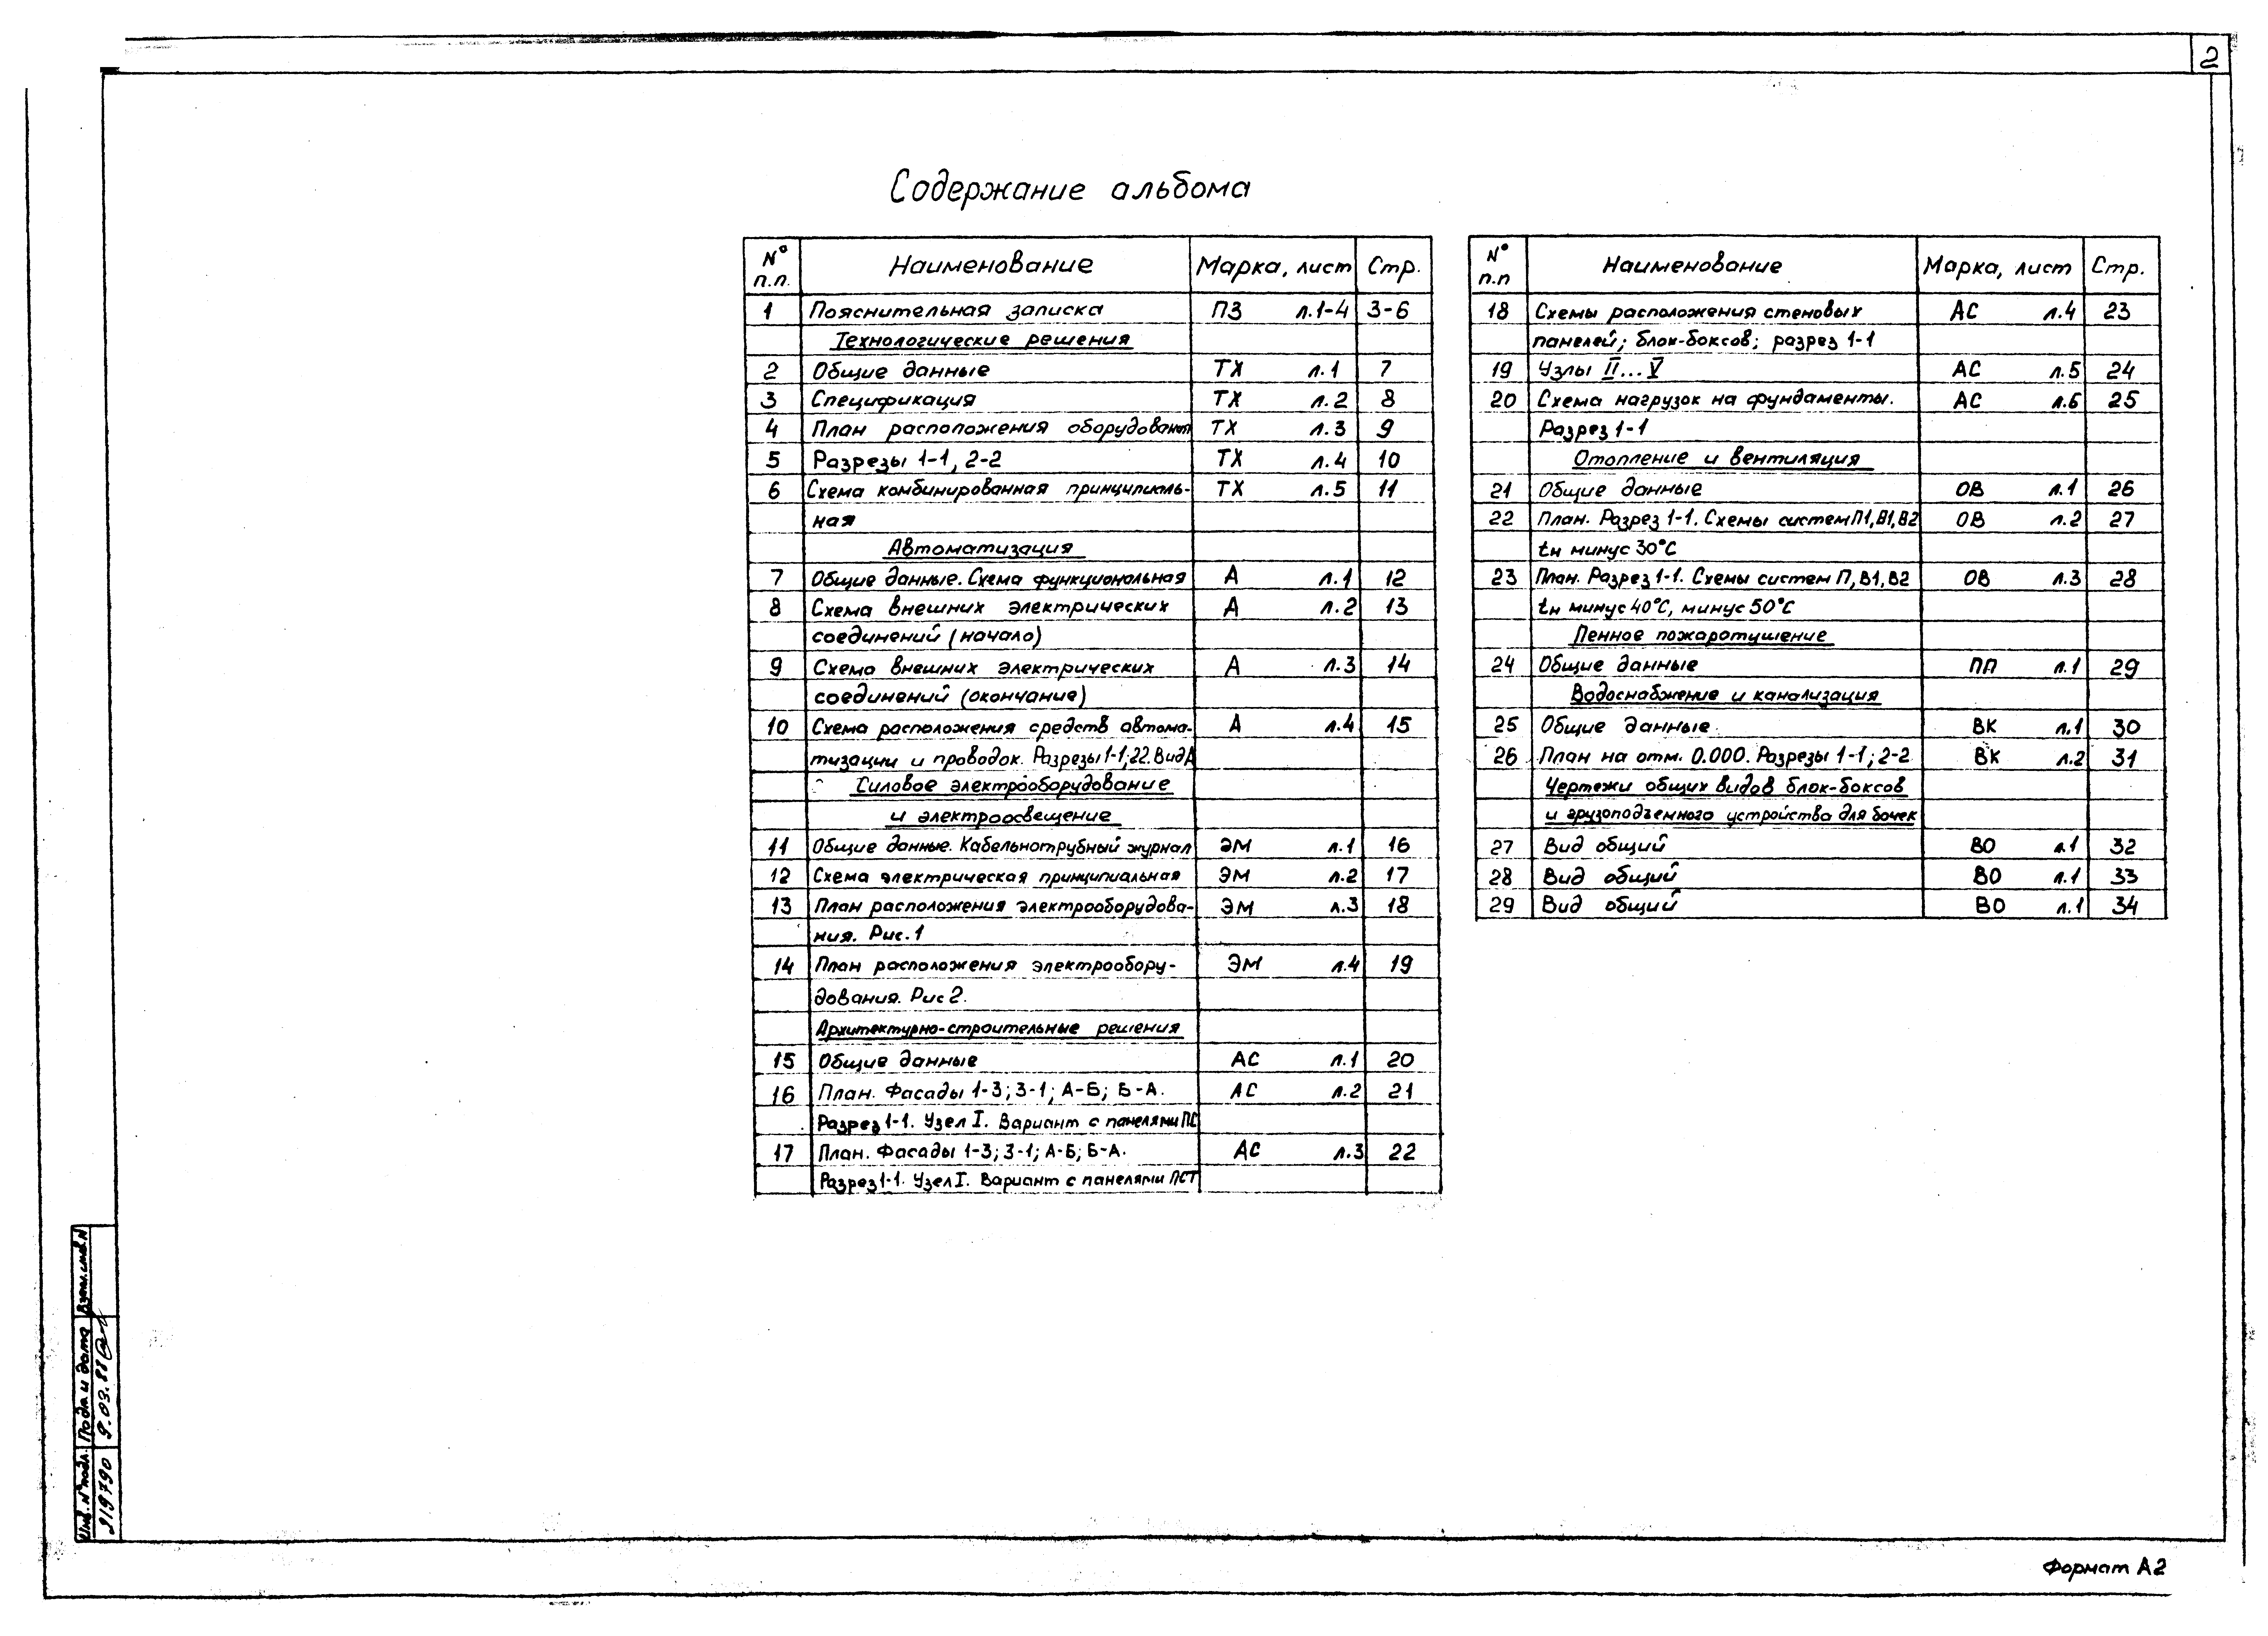 2
Содержание альбома
№ п.п. Наименование Марка, лист Стр.
1 Пояснительная записка ПЗ л.1-4 3-6
Технологические решения
2 Общие данные ТХ л.1 7
3 Спецификация ТХ л.2 8
4 План расположения оборудования ТХ л.3 9
5 Разрезы 1-1, 2-2 ТХ л.4 10
6 Схема комбинированная принципиаль- ТХ л.5 11
ная
Автоматизация
7 Общие данные. Схема функциональная А л.1 12
8 Схема внешних электрических А л.2 13
соединений (начало)
9 Схема внешних электрических А л.3 14
соединений (окончание)
10 Схема расположения средств автома- А л.4 15
тизации и проводок. Разрезы 1-1; 22. Вид А
Силовое электрооборудование
и электроосвещение
11 Общие данные. Кабельнотрубный журнал ЭМ л.1 16
12 Схема электрическая принципиальная ЭМ л.2 17
13 План расположения электрооборудова- ЭМ л.3 18
ния. Рис.1
14 План расположения электрообору- ЭМ л.4 19
дования. Рис 2.
Архитектурно-строительные решения
15 Общие данные АС л.1 20
16 План. Фасады 1-3; 3-1; А-Б; Б-А. АС л.2 21
Разрез 1-1. Узел I. Вариант с панелями ПС
17 План. Фасады 1-3; 3-1; А-Б; Б-А. АС л.3 22
Разрез 1-1. Узел I. Вариант с панелями ПСТ
№ п.п Наименование Марка, лист Стр.
18 Схемы расположения стеновых АС л.4 23
панелей; блок-боксов; разрез 1-1
19 Узлы II...V АС л.5 24
20 Схема нагрузок на фундаменты. АС л.6 25
Разрез 1-1
Отопление и вентиляция
21 Общие данные ОВ л.1 26
22 План. Разрез 1-1. Схемы систем П1, В1, В2 ОВ л.2 27
tн минус 30°С
23 План. Разрез 1-1. Схемы систем П, В1, В2 ОВ л.3 28
tн минус 40°С, минус 50°С
Пенное пожаротушение
24 Общие данные ПП л.1 29
Водоснабжение и канализация
25 Общие данные ВК л.1 30
26 План на отм. 0.000. Разрезы 1-1; 2-2 ВК л.2 31
Чертежи общих видов блок-боксов
и грузоподъемного устройства для бочек
27 Вид общий ВО л.1 32
28 Вид общий ВО л.1 33
29 Вид общий ВО л.1 34
Взам. инв. N
Подп и дата 9.03.88
Инв. N подл. 919790
Формат А2